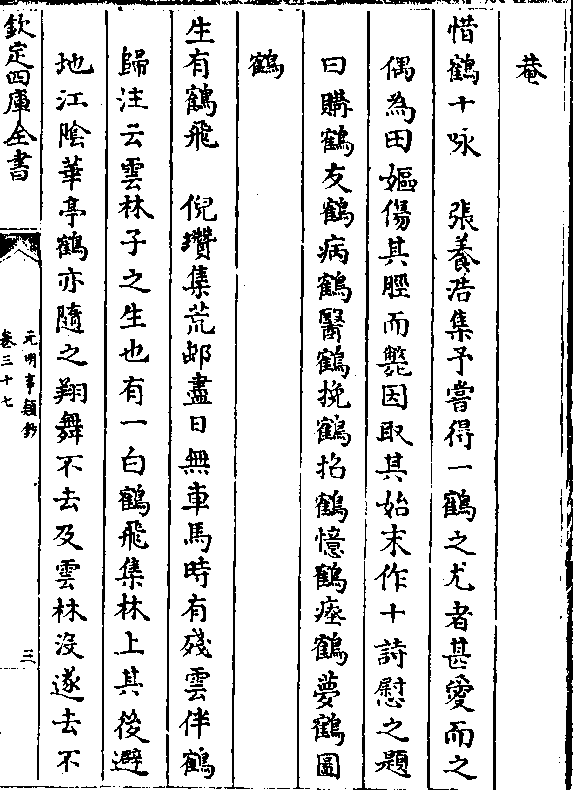 菴
惜鶴十咏　張養浩集予嘗得一鶴之尤者甚愛而之
偶為田嫗傷其脛而斃因取其始末作十詩慰之題
曰購鶴友鶴病鶴醫鶴挽鶴招鶴憶鶴瘞鶴夢鶴圖
鶴
生有鶴飛　倪瓚集荒邨盡日無車馬時有殘雲伴鶴
歸注云雲林子之生也有一白鶴飛集林上其後避
地江陰華亭鶴亦隨之翔舞不去及雲林沒遂去不
欽定四庫全書
元明事類鈔
卷三十七
三